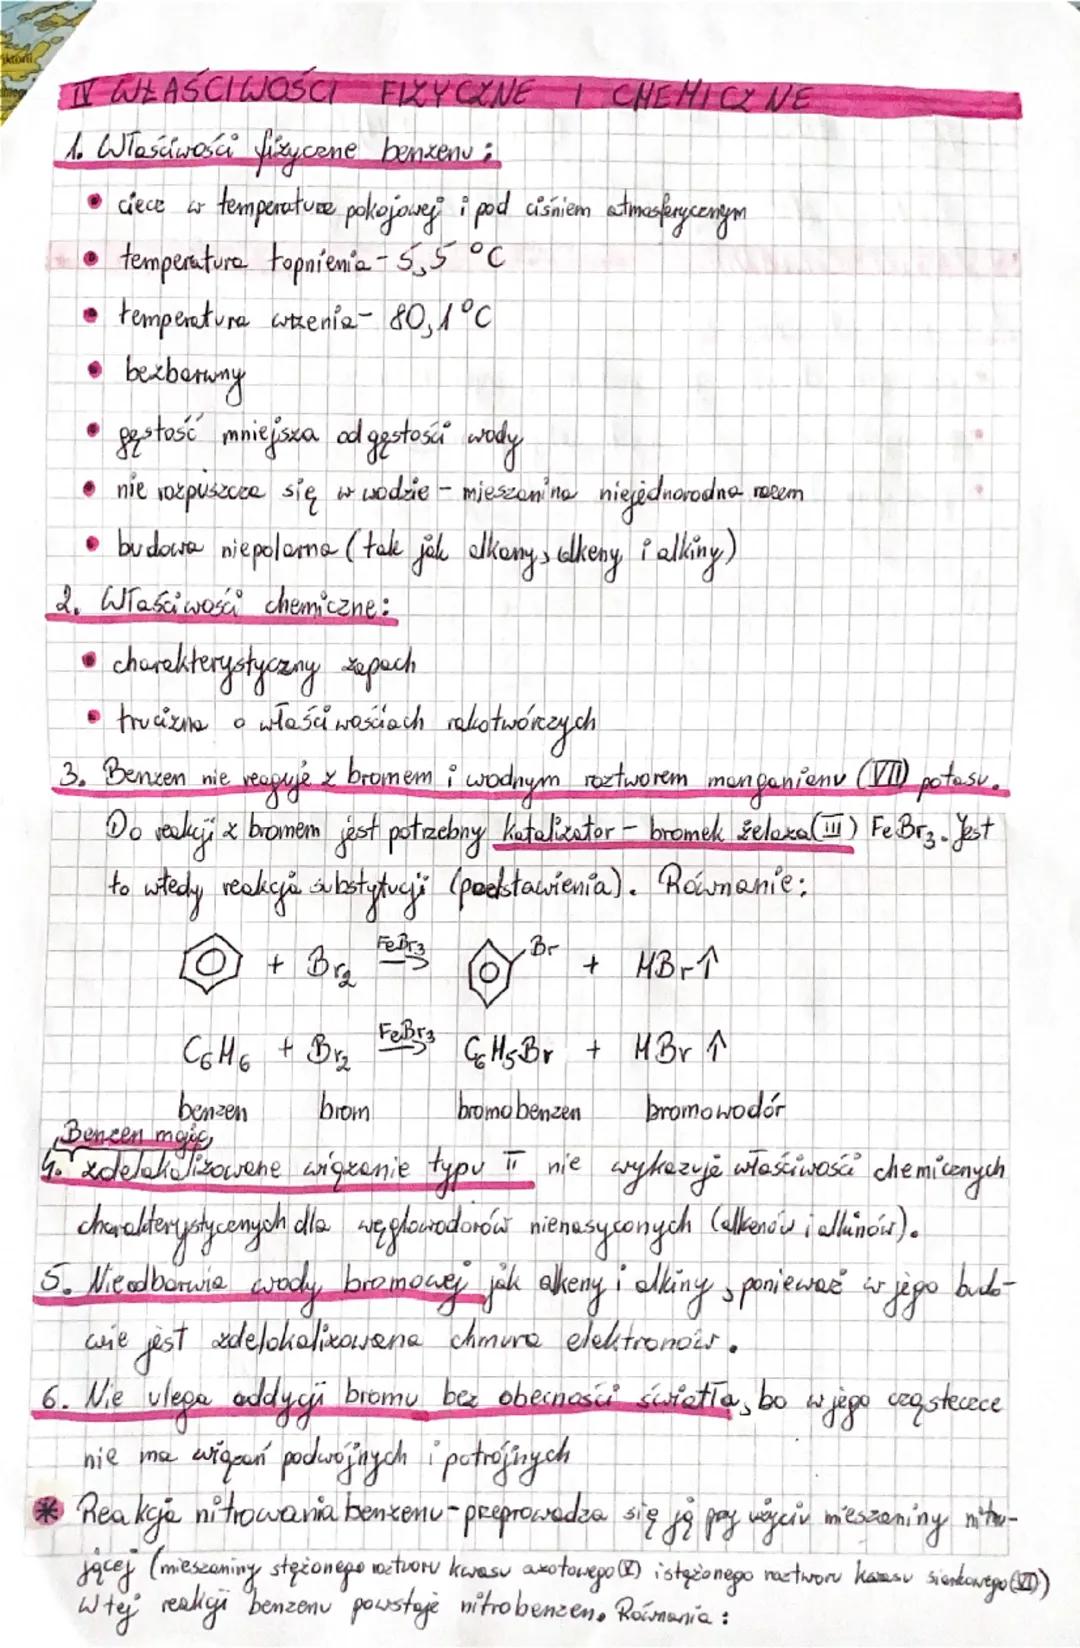 IV WŁAŚCIWOŚCI FIZYCZNE I CHEMICZNE
1. Właściwości fizyczne benzenu:
• ciecz w temperaturze pokojowej i pod ciśniem atmosferycznym
• temperatura topnienia - 5,5 °C
• temperatura wrzenia - 80,1°C
• bezbarwny
• gęstość mniejsza od gęstości wody
• nie rozpuszcza się w wodzie - mieszanina niejednorodna
• budowa niepolarna (tak jak alkany, alkeny i alkiny)
2. Właściwości chemiczne:
• charakterystyczny zapach
• trucizna o właściwościach rakotwórczych
3. Benzen nie reaguje z bromem i wodnym roztworem manganianu (VII) potasu.
Do reakcji z bromem jest potrzebny katalizator - bromek żelaza(III) FeBr3. Jest
to wtedy reakcja substytucji (podstawienia). Równanie:
+ Br2 FeBr3 → Br + HBr↑
C6H6 + Br2 FeBr3 → C6H5Br + HBr ↑
benzen brom bromobenzen bromowodór
Benzen mając
4. zdelokalizowane wiązanie typu π nie wykazuje właściwości chemicznych
charakterystycznych dla węglowodorów nienasyconych (alkenów i alkinów).
5. Nie odbarwia wody bromowej jak alkeny i alkiny, ponieważ w jego budo-
wie jest zdelokalizowana chmura elektronów.
6. Nie ulega addycji bromu bez obecności światła, bo w jego cząsteczce
nie ma wiązań podwójnych i potrójnych
* Reakcja nitrowania benzenu - przeprowadza się ją przy użyciu mieszaniny nitru-
jącej (mieszaniny stężonego roztworu kwasu azotowego(V) i stężonego roztworu kwasu siarkowego(VI))
W tej reakcji benzenu powstaje nitrobenzen. Równania: